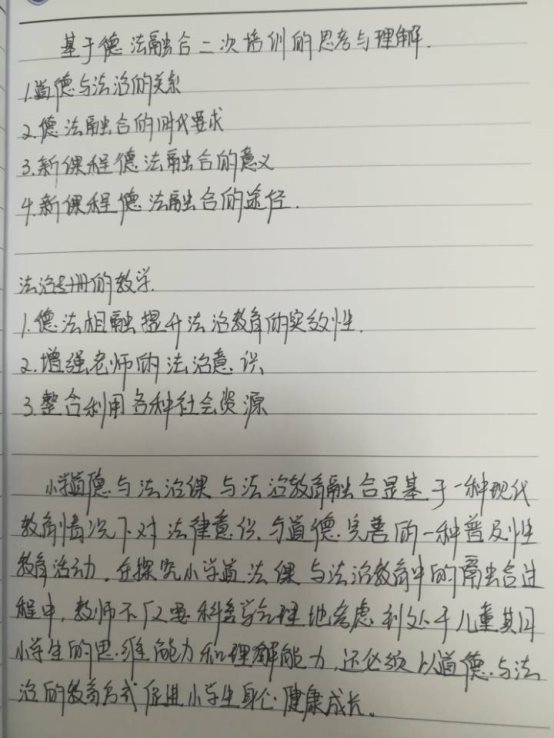 基于德法融合二次培训的思考与理解.
1.道德与法治的关系
2.德法融合的时代要求
3.新课程德法融合的意义
4.新课程德法融合的途径.
法治专册的教学.
1.德法相融提升法治教育的实效性.
2.增强老师的法治意识
3.整合利用各种社会资源
小学道德与法治课与法治教育融合是基于一种现代
教育情况下对法律意识与道德完善的一种普及性
教育活动,在探究小学道法课与法治教育中的融合过
程中,教师不仅要科学合理地考虑到处于儿童其间
小学生的思维能力和理解能力,还必须以道德与法
治的教育方式促进小学生身心健康成长。